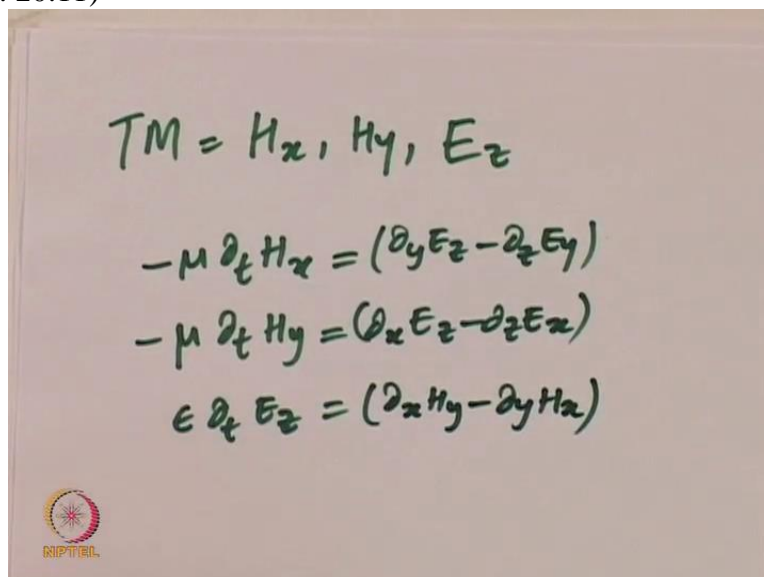 . 20.11)
TM = Hx, Hy, Ez
-μ ∂t Hx = (∂y Ez - ∂z Ey)
-μ ∂t Hy = (∂x Ez - ∂z Ex)
ϵ ∂t Ez = (∂x Hy - ∂y Hx)
NPTEL